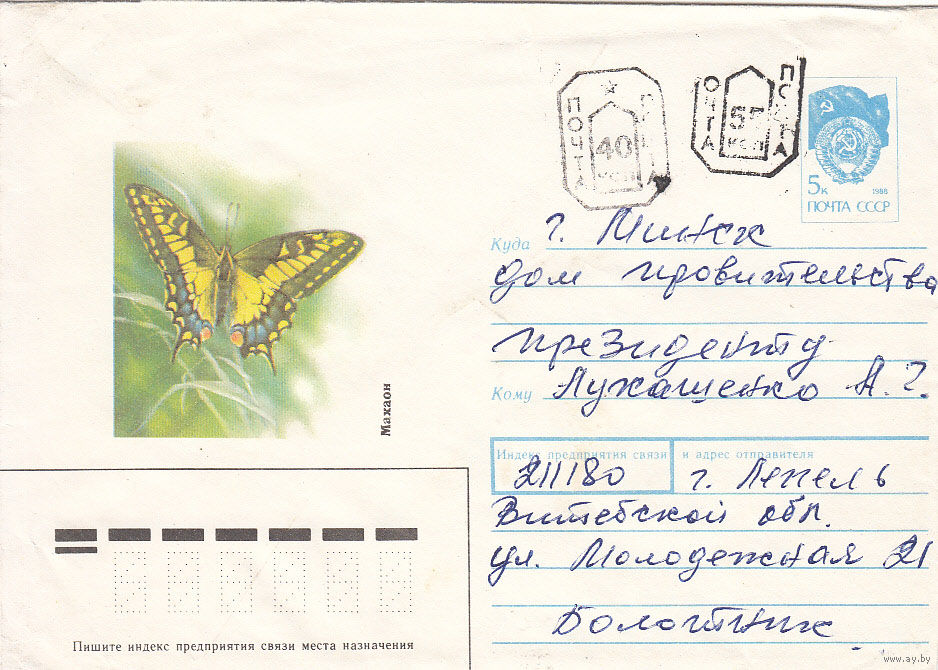 ПОЧТА 40 коп ПОЧТА
ПОЧТА 55 коп ПОЧТА
5к 1988
ПОЧТА СССР
Куда г. Минск
дом провительства
президенту
Кому Лукашенко А. Г.
Махаон
Индекс предприятия связи и адрес отправителя
211180 г. Лепель
Витебской обл.
ул. Молодежная 21
Болотник
Пишите индекс предприятия связи места назначения
www.ay.by